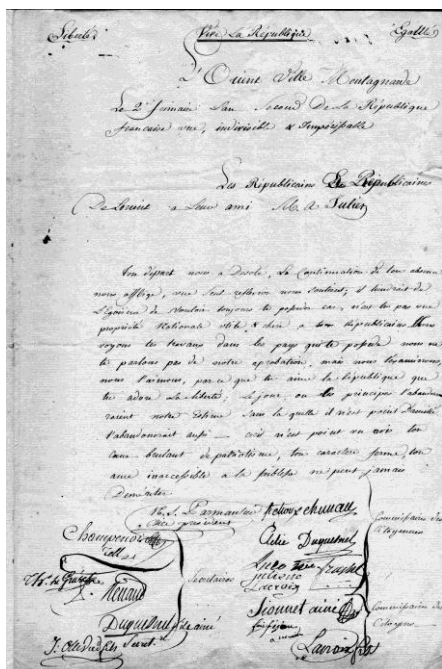 Liberté Vive La République Egallté
L'Orient Ville Montagnarde
Le 2e l'an Second De La République
française une, indivisible & Impérissable
Les Républicains & Républicaines
De Lorient a Leur ami M. A Julien
Ton départ nous a Désolé, La Continuation de ton absence
nous afflige, une Seul reflexion nous soutient; il tiendrait de
L'égoisme de Vouloir toujours te posséder car, n'es tu pas une
propriété Nationale utile, & chère a tous Républicains. Nous
voyons tes travaux dans les pays qui te possède nous ne
te parlons pas de notre aprobation, mais nous
nous t'aimons, parce que tu aime la république que
tu adore La liberté; Le jour, ou Les principes t'abandon
raient notre Estime Sans la quelle il n'est point D'amitié
t'abandonnerait aussi ceci n'est point un avis ton
Cœur brulant de patriotisme, ton caractère ferme, ton
ame inaccessible a la foiblesse ne peut jamais
Démériter
Parmantier
vice président
Commissaire des
Citoyennes
Adélie Duquesnel
Secretaires
Lacroix
Renaud
Jionnet ainé
Duquesnel
Commissaire des
Citoyens
Lacroix fils